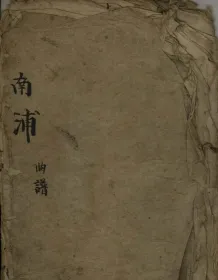 南浦
曲譜